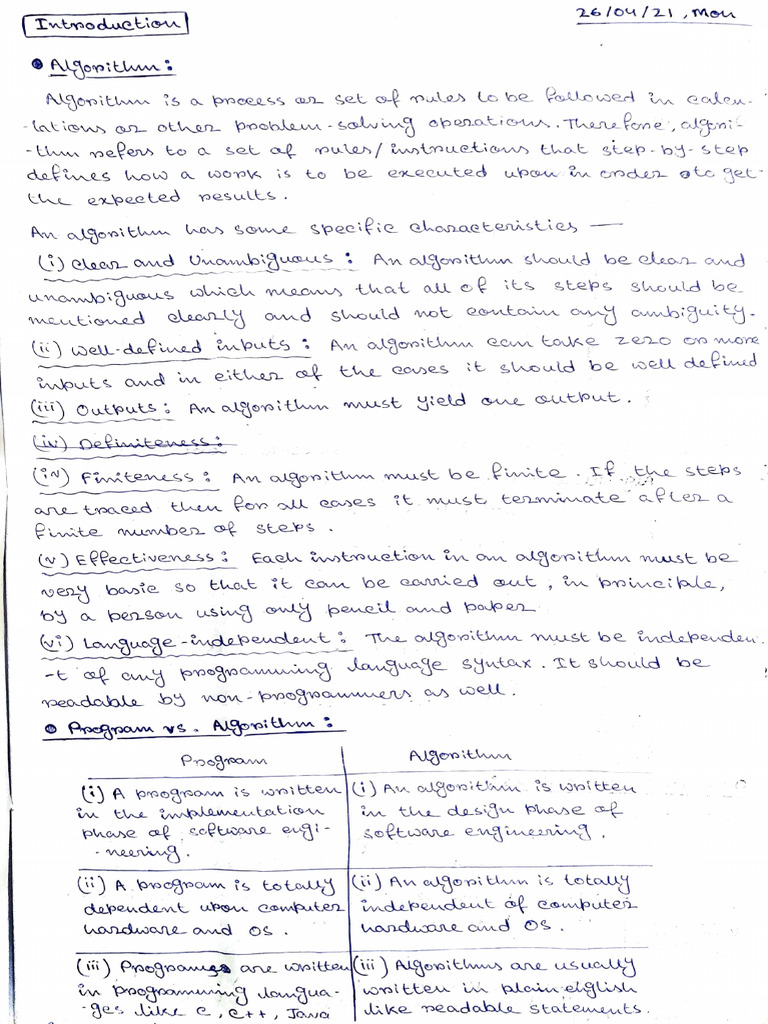 Introduction
26/04/21, Mon
• Algorithm:
Algorithm is a process or set of rules to be followed in calcu-
-lations or other problem-solving operations. Therefore, algori-
-thm refers to a set of rules/instructions that step-by-step
defines how a work is to be executed upon in order to get
the expected results.
An algorithm has some specific characteristics —
(i) Clear and Unambiguous: An algorithm should be clear and
unambiguous which means that all of its steps should be
mentioned clearly and should not contain any ambiguity.
(ii) Well-defined inputs: An algorithm can take zero or more
inputs and in either of the cases it should be well defined
(iii) Outputs: An algorithm must yield one output.
(iv) Definiteness:
(iv) Finiteness: An algorithm must be finite. If the steps
are traced then for all cases it must terminate after a
finite number of steps.
(v) Effectiveness: Each instruction in an algorithm must be
very basic so that it can be carried out, in principle,
by a person using only pencil and paper
(vi) Language-independent: The algorithm must be independen-
-t of any programming language syntax. It should be
readable by non-programmers as well.
• Program vs. Algorithm:
Program
Algorithm
(i) A program is written
in the implementation
phase of software engi-
-neering.
(i) An algorithm is written
in the design phase of
software engineering.
(ii) A program is totally
dependent upon computer
hardware and OS.
(ii) An algorithm is totally
independent of computer
hardware and OS.
(iii) Programs are written
in programming langua-
-ges like C, C++, Java
(iii) Algorithms are usually
written in plain elglish
like readable statements.